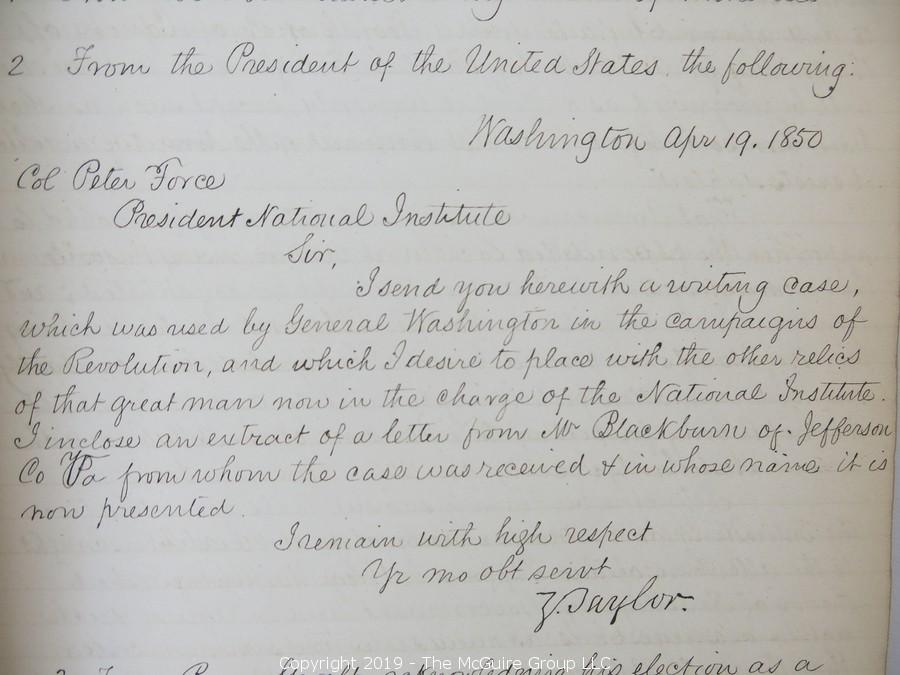 2 From the President of the United States, the following:
Washington Apr 19. 1850
Col Peter Force
President National Institute
Sir,
I send you herewith a writing case,
which was used by General Washington in the campaigns of
the Revolution, and which I desire to place with the other relics
of that great man now in the charge of the National Institute.
I inclose an extract of a letter from Mr Blackburn of Jefferson
Co Va from whom the case was received & in whose name it is
now presented.
I remain with high respect
Yr mo obt servt
Z. Taylor.
acknowledging his election as a
Copyright 2019 - The McGuire Group LLC